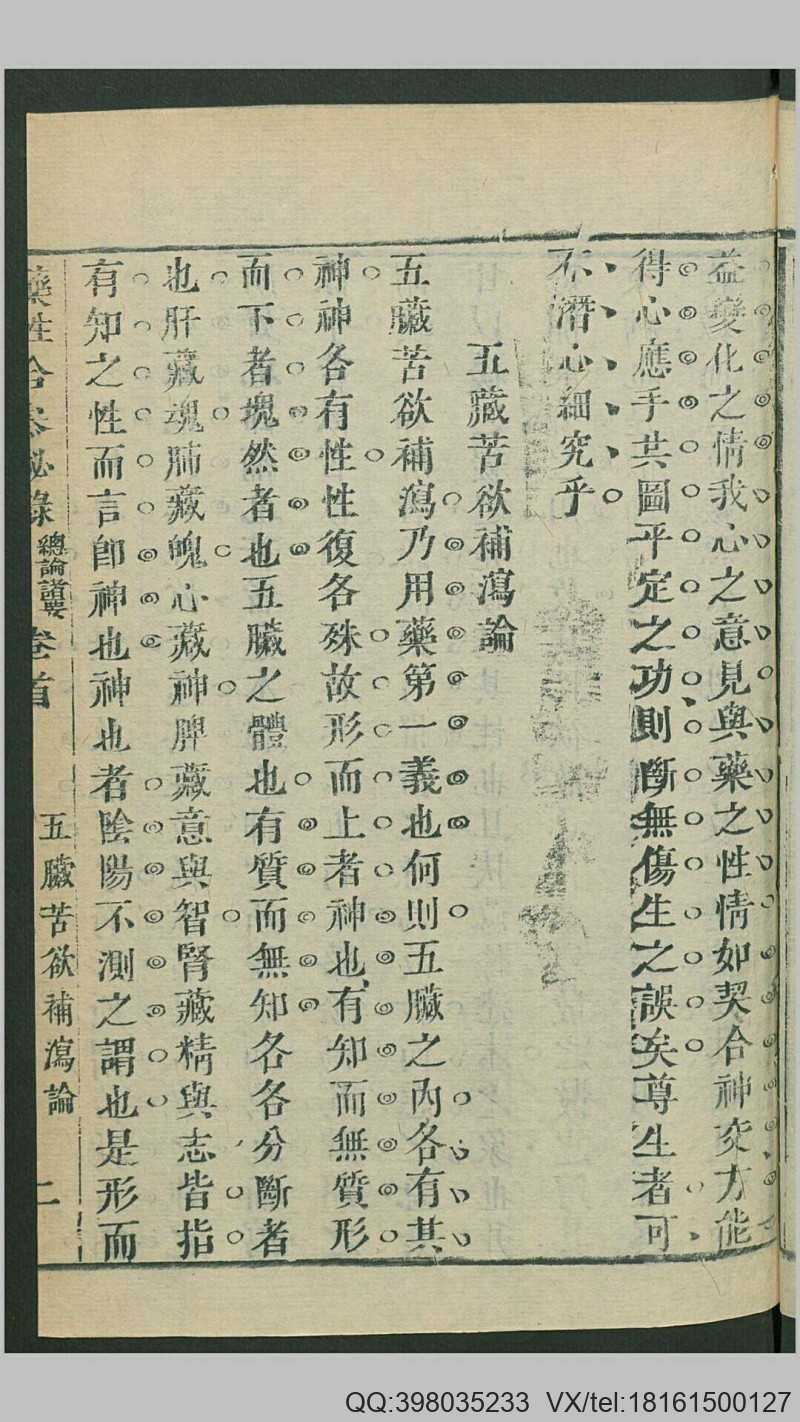 益變化之情我心之意見與藥之性情如契合神交方能
得心應手其圖平定之功則斷無傷生之誤矣尊生者可
不潛心細究乎
五臟苦欲補瀉論
五臟苦欲補瀉乃用藥第一義也何則五臟之內各有其
神神各有性性復各殊故形而上者神也有知而無質形
而下者塊然者也五臟之體也有質而無知各各分斷者
也肝藏魂肺藏魄心藏神脾藏意與智腎藏精與志皆指
有知之性而言即神也神也者陰陽不測之謂也是形而
藥性合參秘錄 總論讀要 卷首 五臟苦欲補瀉論 二
QQ:398035233 VX/tel:18161500127